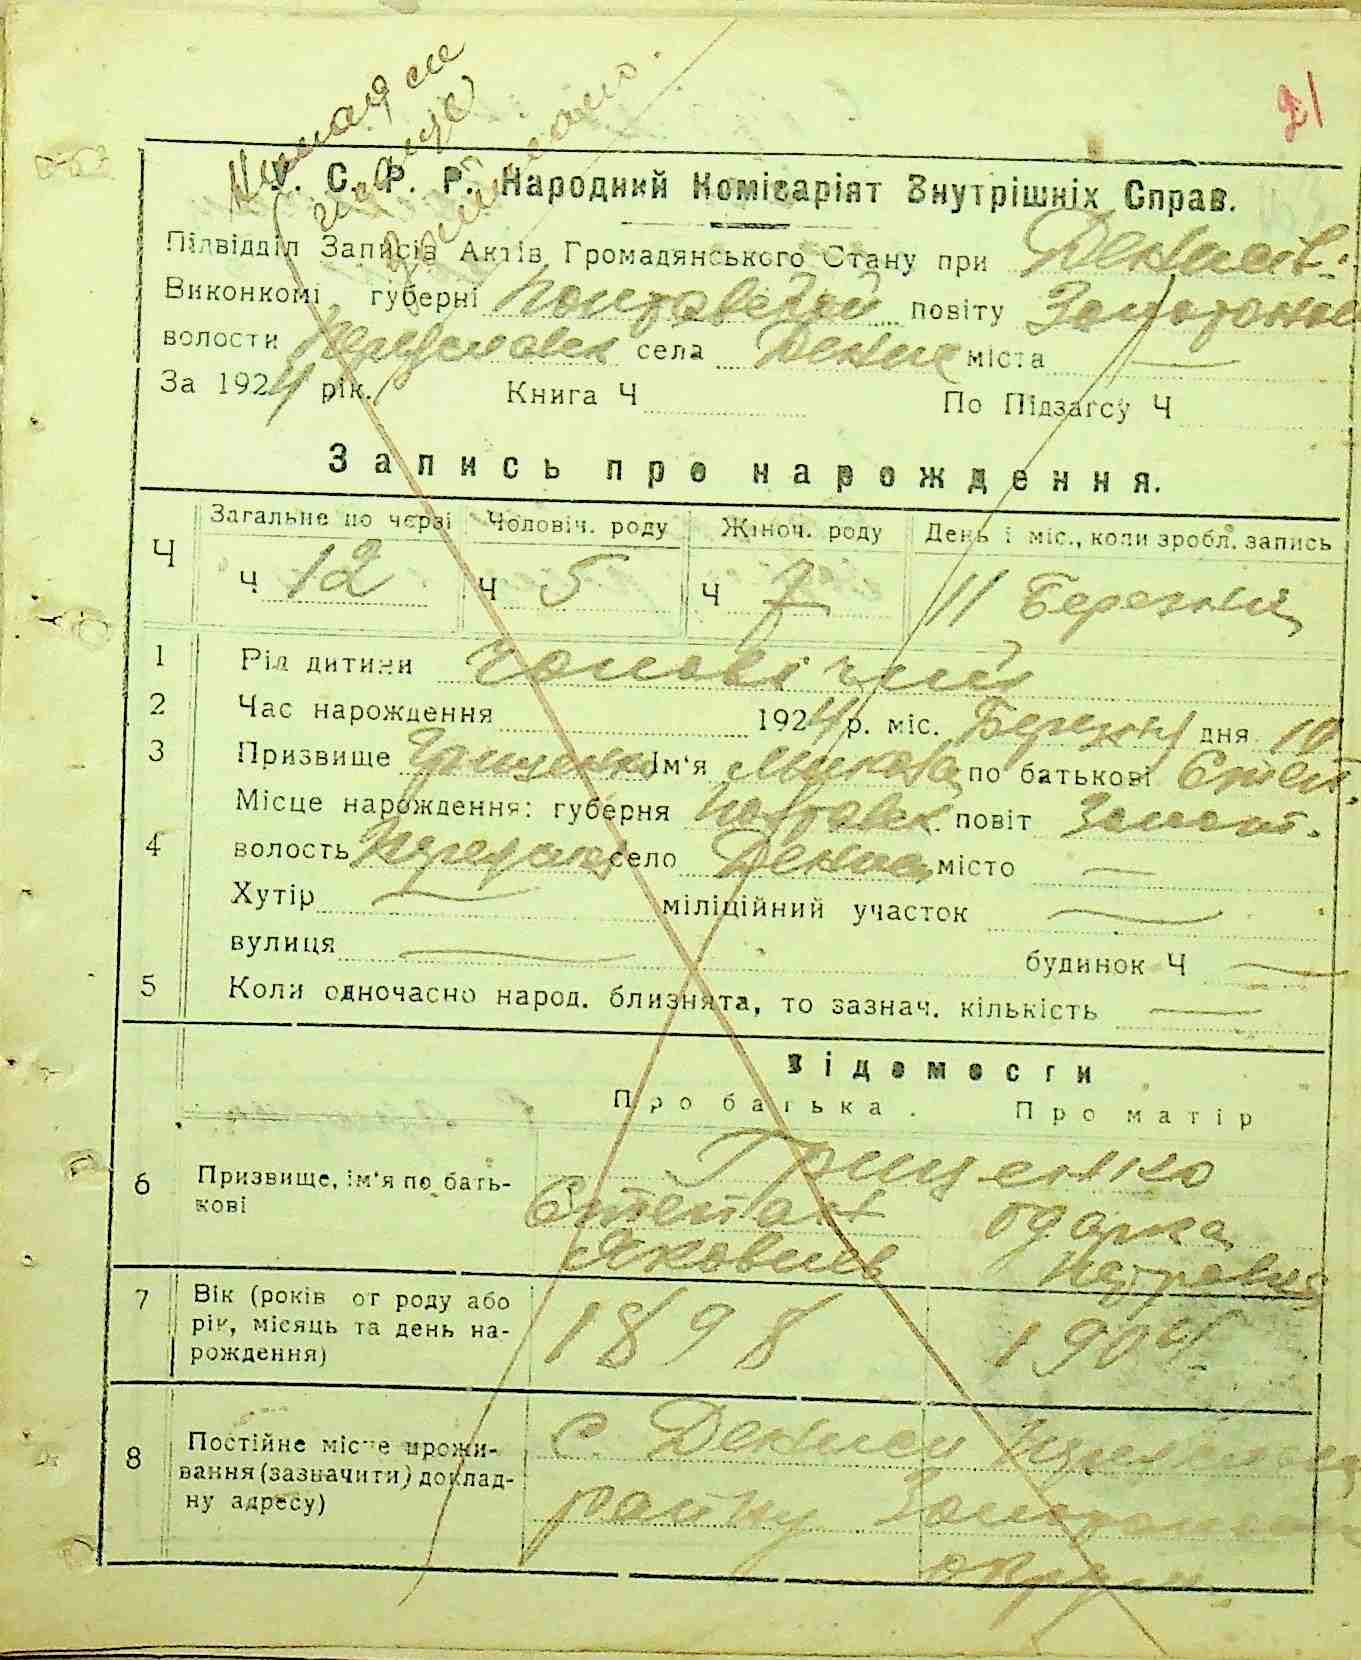 21
У. С. Р. Р. Народний Комісаріят Внутрішніх Справ.
Підвідділ Записів Актів Громадянського Стану при Денисів.
Виконкомі губерні Полтавській повіту Золотоно
волости Переяславск села Дениси міста —
За 1924 рік. Книга Ч По Підзагсу Ч
Запись про нарождення.
Загальне по черзі Чоловіч. роду Жіноч. роду День і міс., коли зробл. запись
Ч Ч 12 Ч 5 Ч 7 11 Березня
1 Рід дитини чоловічий
2 Час нарождення 1924 р. міс. Березня дня 10
3 Призвище Грищенко Ім'я Микола по батькові Степ.
Місце нарождення: губерня Полтавск. повіт Золот.
4 волость Переясл село Дениси місто —
Хутір — міліційний участок —
вулиця — будинок Ч —
5 Коли одночасно народ. близнята, то зазнач. кількість —
Відомости
Про батька. Про матір
6 Призвище, ім'я по бать-
кові
Грищенко
Степан Одарка
Яковлев Петровна
7 Вік (років от роду або
рік, місяць та день на-
рождення)
1898 1904
8 Постійне місце прожи-
вання (зазначити) доклад-
ну адресу)
с. Дениси
району
округи